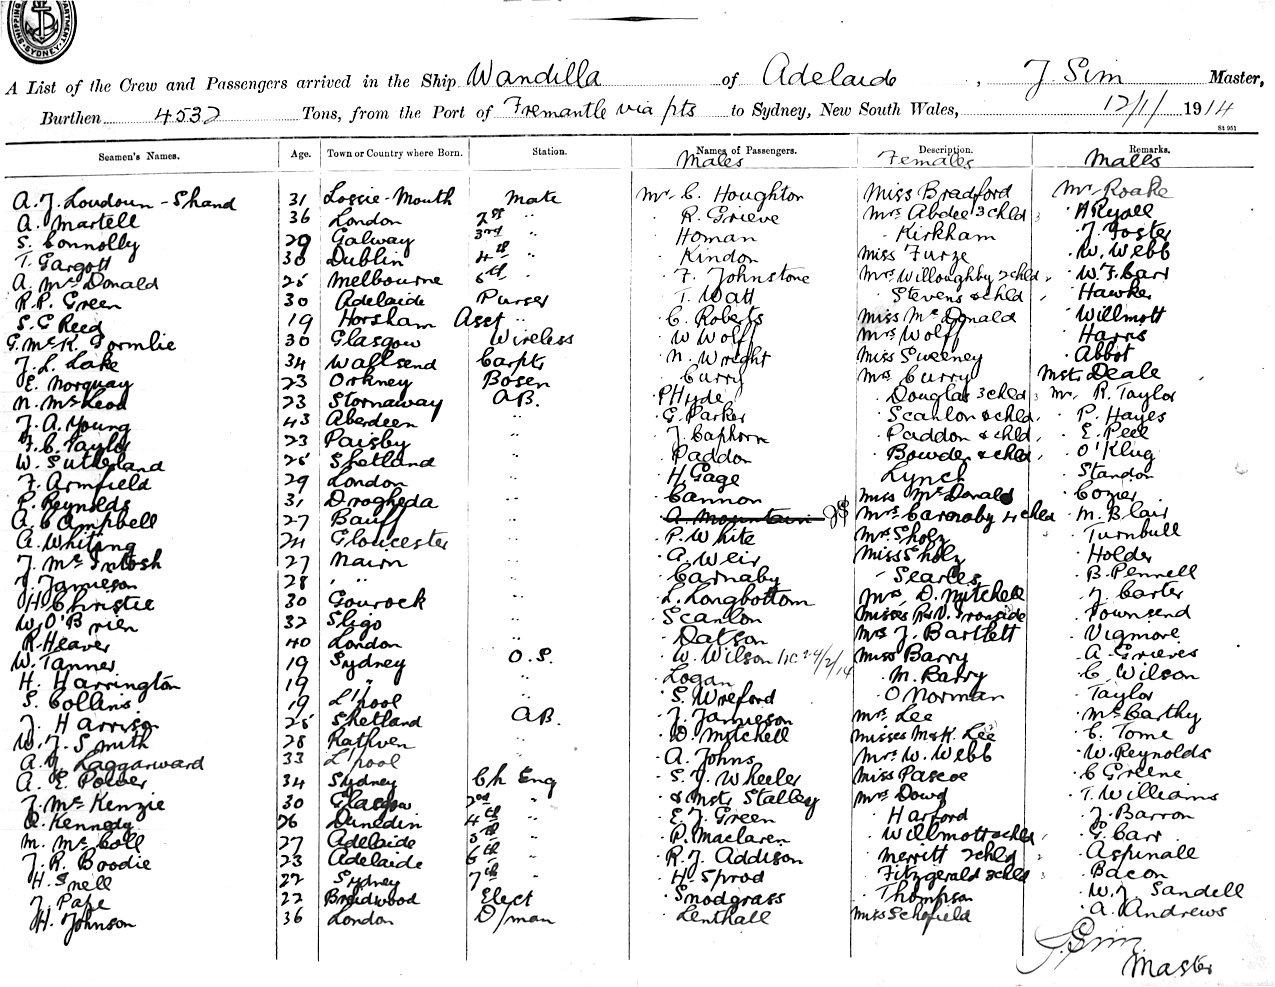 SHIPPING DEPARTMENT, SYDNEY
A List of the Crew and Passengers arrived in the Ship Wandilla of Adelaide, J. Sim Master,
Burthen 4532 Tons, from the Port of Fremantle via pts to Sydney, New South Wales, 12/1/1914
St 951
Seamen's Names. Age. Town or Country where Born. Station. Names of Passengers. Description. Remarks.
Males Females Males
A. J. Loudoun-Shand 31 Lossie-Mouth Mate Mr C. Houghton Miss Bradford Mr Roake
A. Martell 36 London 2nd " R. Grieve Mrs Abdee 3 chld A Ryall
S. Connolly 29 Galway 3rd " Homan Kirkham J. Foster
T. Gargott 30 Dublin 4th " Kindon Miss Furze W. Webb
A. McDonald 25 Melbourne 5th " F. Johnstone Mrs Willoughby 2 chld W. F. Carr
R. P. Green 30 Adelaide Purser T. Watt Stevens & chld Hawker
S. C Reed 19 Horsham Asst " C. Roberts Miss McDonald Willmott
G. McK. Gormlie 30 Glasgow Wireless W Wolff Mrs Wolff Harris
J. L. Lake 34 Wallsend Carptr N. Wright Miss Sweeney Abbot
E. Norquay 23 Orkney Bosen Curry Mrs Curry Mstr Deale
N. McLeod 23 Stornaway A.B. P Hyde Douglas 3 chld Mr R. Taylor
J. A. Young 43 Aberdeen " G. Parker Scanlon & chld P. Hayes
F. C. Taylor 23 Paisby " J. Caphorn Paddon & chld E. Peel
W. Sutherland 25 Shetland " Paddon Bowden & chld O'Klug
J. Armfield 29 London " H. Gage Lynch Standon
P. Reynolds 31 Drogheda " Cannon Miss McDonald Cozier
A. Campbell 27 Banff " A. Mountain JS Mrs Carnaby 4 chld M. Blair
A. Whiting 24 Gloucester " P. White Mrs Sholz Turnbull
J. McIntosh 27 Nairn " A. Weir Miss Sholz Holder
J. Jamieson 28 " " " Carnaby Searles B. Pennell
H. Christie 30 Gourock " L. Longbottom Mrs D. Mitchell J. Carter
W. O'Brien 32 Sligo " Scanlon Misses R & V. Ironside Townsend
R. Heaver 40 London " Datson Mrs J. Bartlett Vigmore
W. Tanner 19 Sydney O.S. W. Wilson 24/2/14 Miss Barry A. Grieves
H. Harrington 19 " " Logan M. Barry C Wilson
S. Collins 19 L'pool " S. Wreford O Norman Taylor
J. Harrison 25 Shetland A.B. J. Jamieson Mrs Lee McCarthy
W. J. Smith 28 Rathven " D. Mitchell Misses M & K. Lee C. Tome
A. J. Laggarward 33 L'pool " A. Johns Mrs W. Webb W. Reynolds
A. E. Power 34 Sydney Ch Eng S. J. Wheeler Miss Pascoe C Greene
J. McKenzie 30 Glasgow 2nd " & Mstr Stalley Mrs Dowd T. Williams
Q. Kennedy 26 Dunedin 4th " E. J. Green Harford J. Barron
M. McColl 27 Adelaide 5th " P. Maclaren Willmott & chld G. Carr
J. R. Boodie 23 Adelaide 6th " R. J. Addison Merritt 2 chld Aspinall
H. Snell 22 Sydney 7th " H. Sprod Fitzgerald 3 chld Bacon
J. Pape 22 Braidwood Elect Snodgrass Thompson W. J Sandell
H. Johnson 36 London D/man Lenthall Miss Schofield A. Andrews
J. Sim
Master